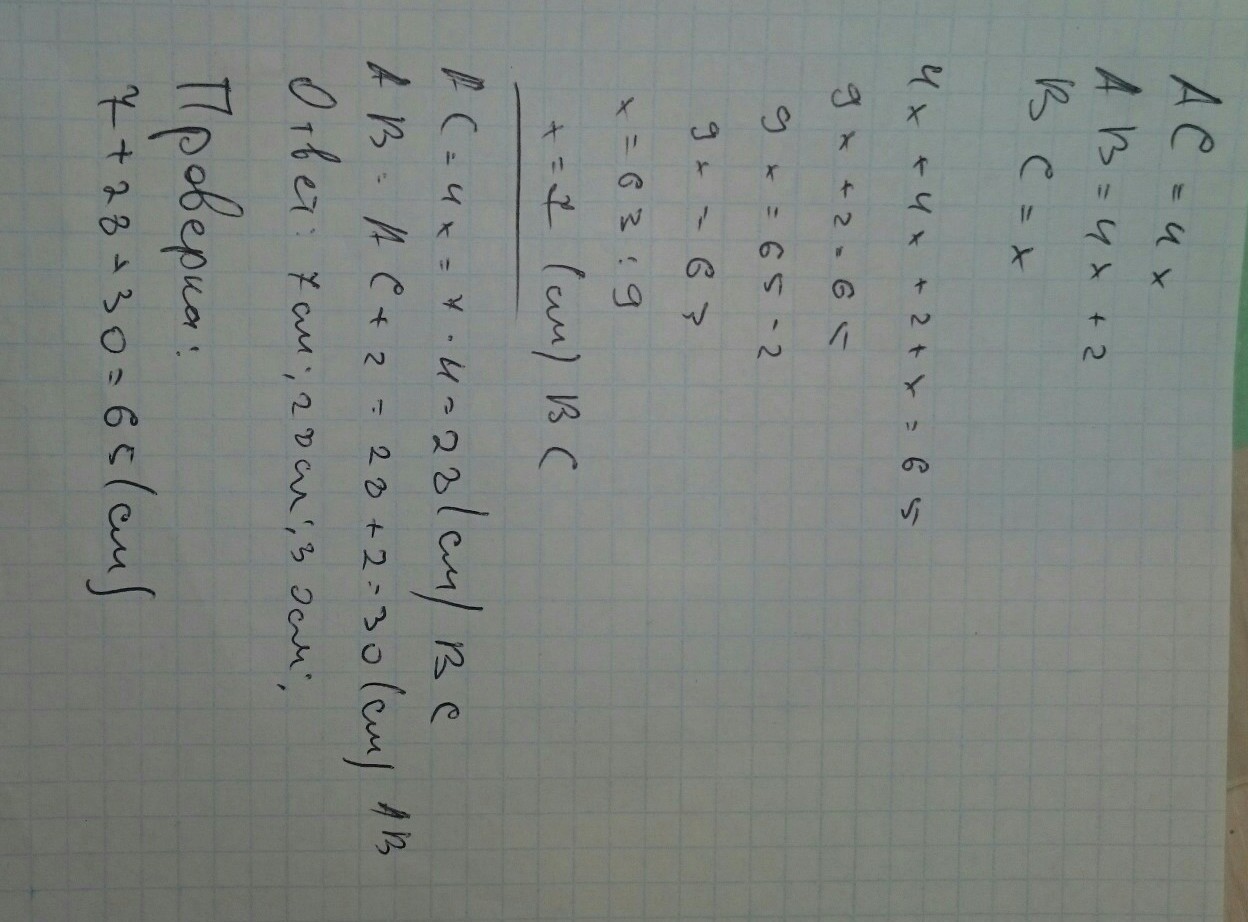 AC = 4x
AB = 4x + 2
BC = x
4x + 4x + 2 + x = 65
9x + 2 = 65
9x = 65 - 2
9x = 63
x = 63 : 9
x = 7 (см) BC
AC = 4x = 7 · 4 = 28 (см) BC
AB = AC + 2 = 28 + 2 = 30 (см) AB
Ответ: 7 см; 28 см; 30 см;
Проверка:
7 + 28 + 30 = 65 (см)